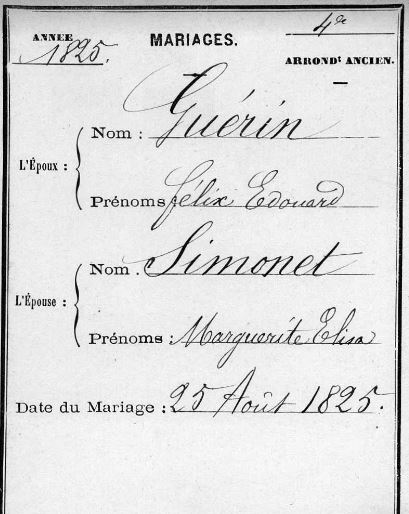 ANNÉE
1825.
MARIAGES.
4e
ARRONDt ANCIEN.
L'Époux :
Nom : Guérin
Prénoms félix Edouard
L'Épouse :
Nom . Simonet
Prénoms : Marguerite Elisa
Date du Mariage : 25 Août 1825.